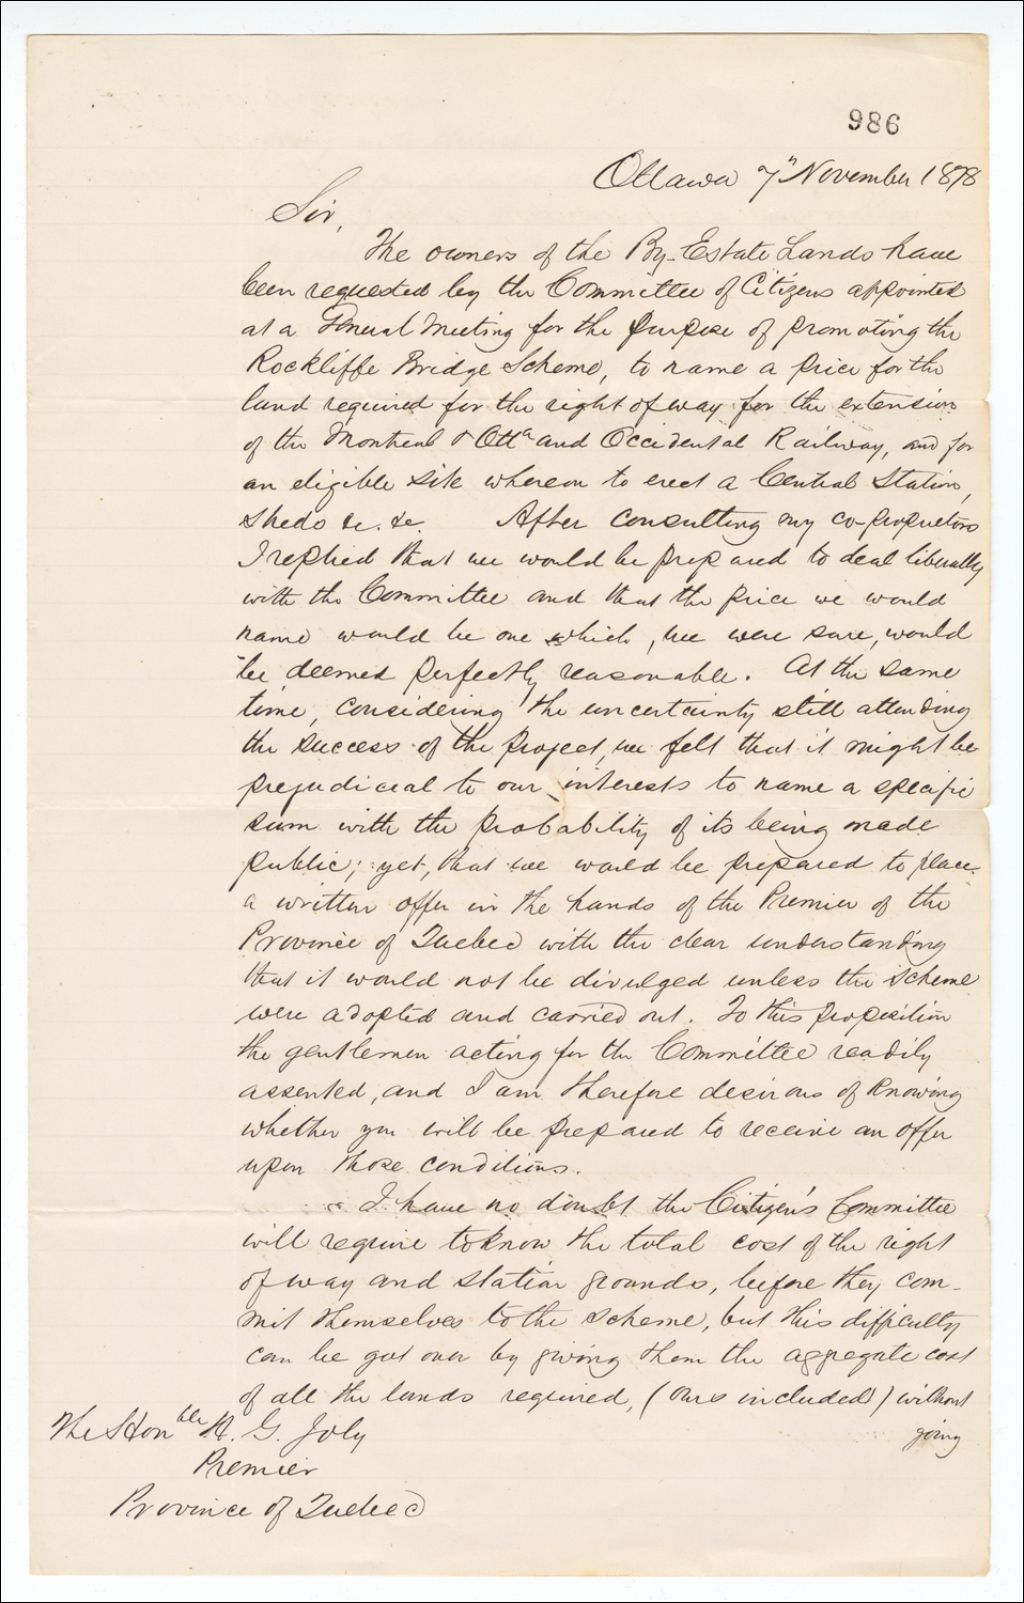 986
Ottawa 7" November 1878
Sir,
The owners of the By-Estate Lands have
been requested by the Committee of Citizens appointed
at a General Meeting for the purpose of promoting the
Rockliffe Bridge Scheme, to name a price for the
land required for the right of way for the extension
of the Montreal & Ott.a and Occidental Railway, and for
an eligible site whereon to erect a Central Station,
sheds &c. &c. After consulting my co-proprietors
I replied that we would be prepared to deal liberally
with the Committee and that the price we would
name would be one which, we were sure, would
be deemed perfectly reasonable. At the same
time, considering the uncertainty still attending
the success of the project, we felt that it might be
prejudicial to our interests to name a specific
sum with the probability of its being made
public; yet, that we would be prepared to place
a written offer in the hands of the Premier of the
Province of Quebec with the clear understanding
that it would not be divulged unless the scheme
were adopted and carried out. To this proposition
the gentlemen acting for the Committee readily
assented, and I am therefore desirous of knowing
whether you will be prepared to receive an offer
upon those conditions.
I have no doubt the Citizen's Committee
will require to know the total cost of the right
of way and station grounds, before they com-
mit themselves to the scheme, but this difficulty
can be got over by giving them the aggregate cost
of all the lands required, (ours included) without
going
The Honble H. G. Joly
Premier
Province of Quebec